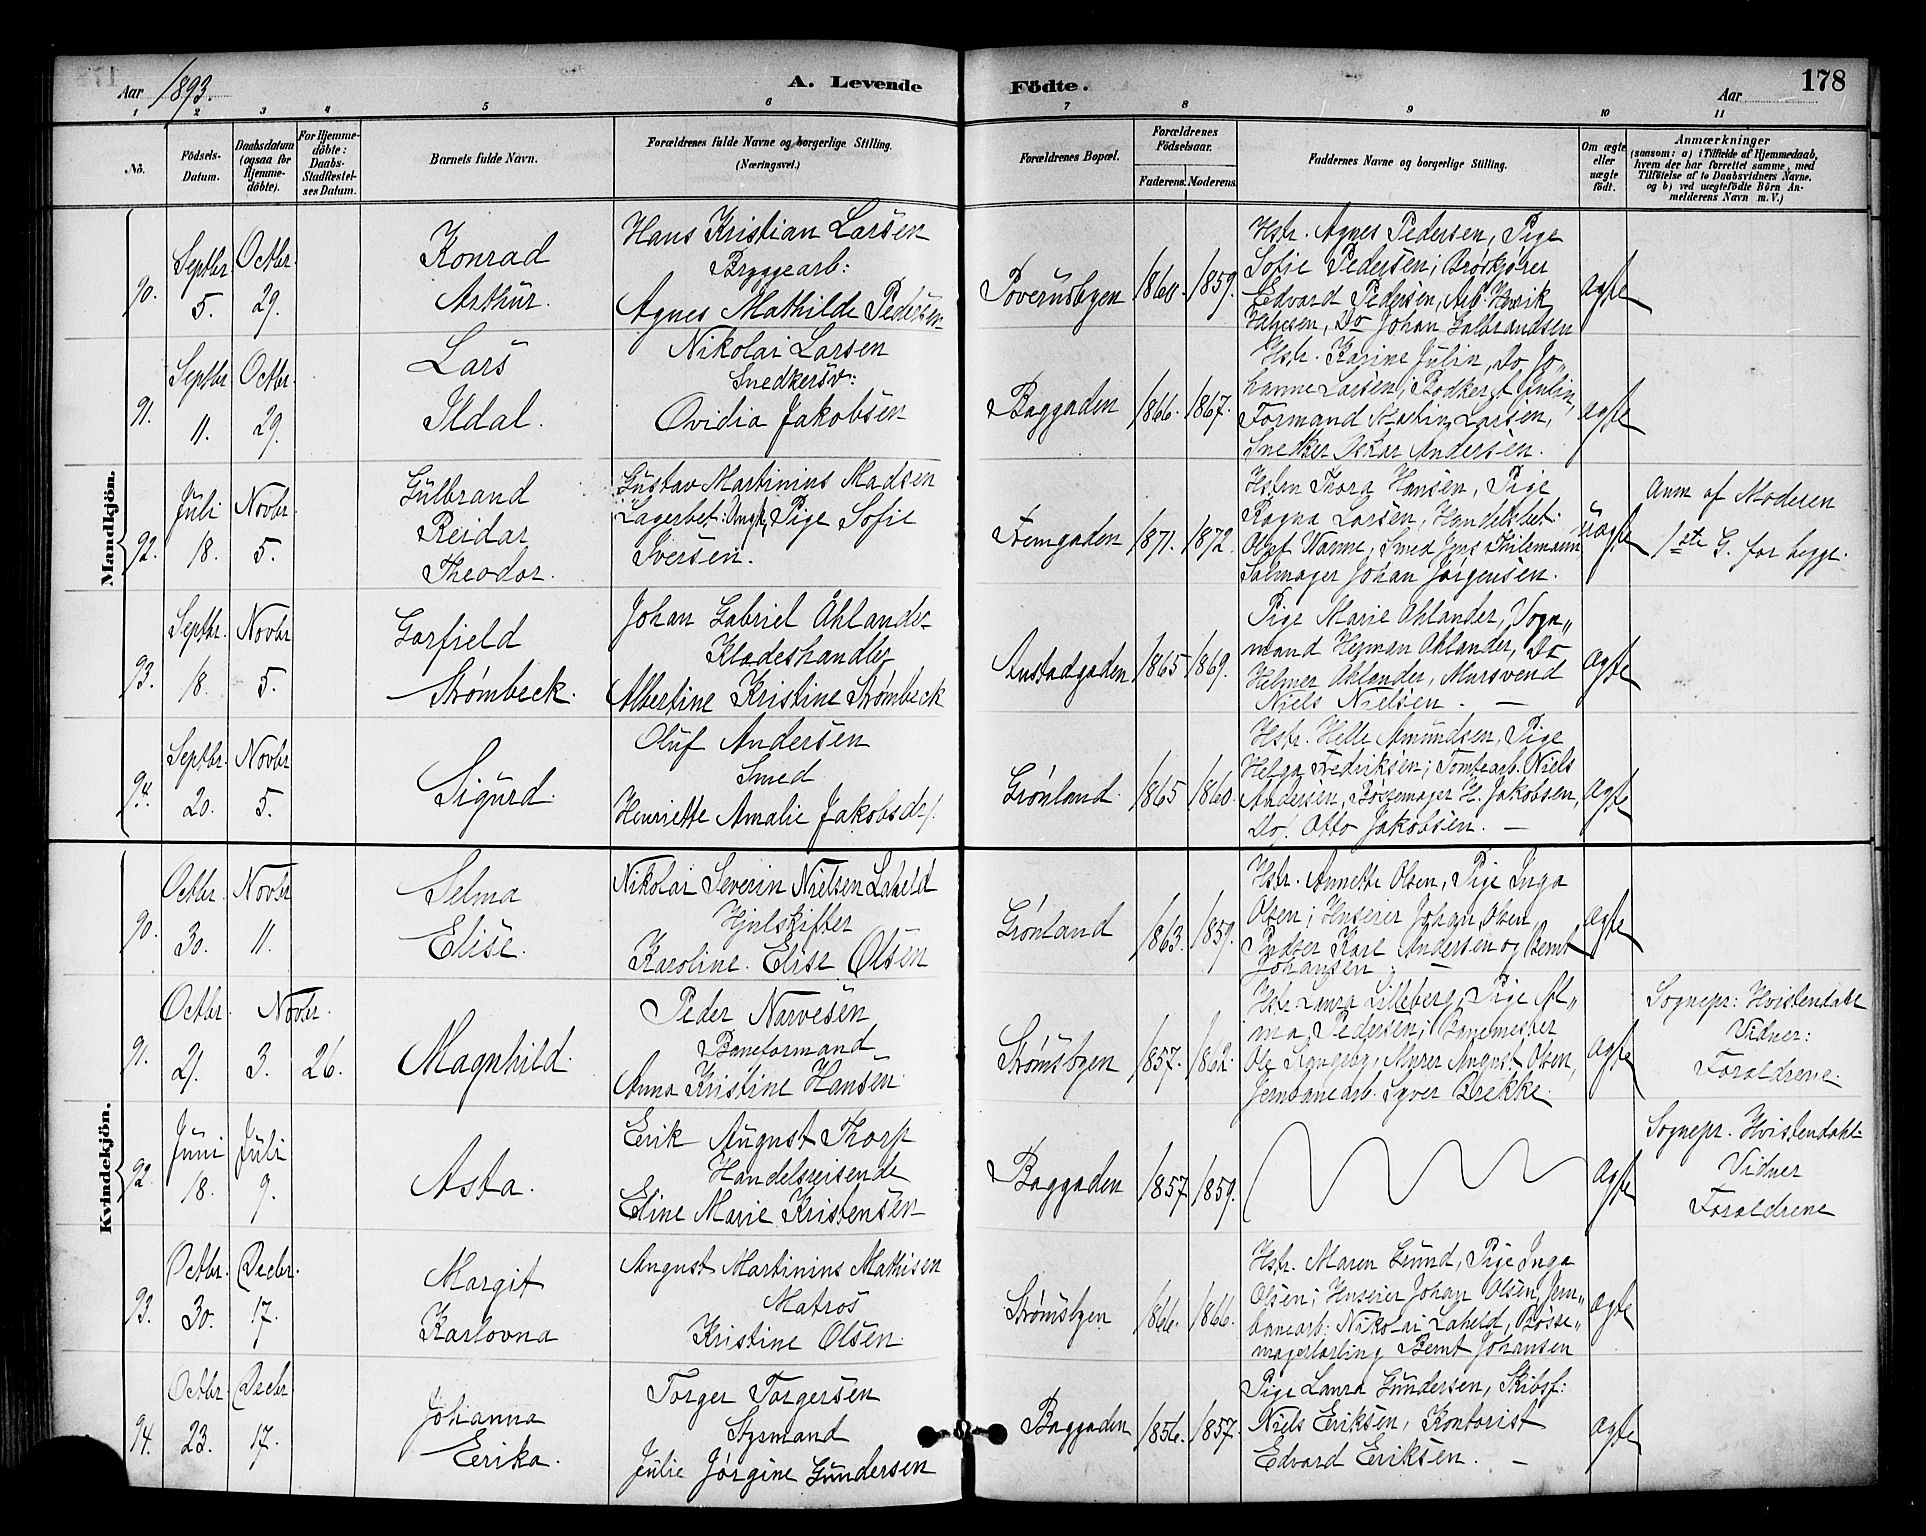 Aar 1893. A. Levende Födte. Aar 178
1 2 3 4 5 6 7 8 9 10 11
Nö. Födsels-Datum. Daabsdatum (ogsaa for Hjemme-döbte). For Hjemme-döbte: Daabs-Stadfæstel-ses Datum. Barnets fulde Navn. Forældrenes fulde Navne og borgerlige Stilling. (Næringsvei.) Forældrenes Bopæl. Forældrenes Födselsaar. Faderens. Moderens. Faddernes Navne og borgerlige Stilling. Om ægte eller uægte födt. Anmærkninger (saasom: a) i Tilfælde af Hjemmedaab, hvem der har forrettet samme, med Tilföielse af to Daabsvidners Navne, og b) ved uægtefödte Börn An-melderens Navn m. V.)
Mandkjön.
90. Septbr 5. Octbr. 29.
Konrad
Arthur.
Hans Kristian Larsen
Bryggearb:
Agnes Mathilde Pedersen
1860. 1859.
Hstr. Agnes Pedersen, Pige
Sofie Pedersen;
Edvard Pedersen, Arb. Henrik
Do Johan Gulbrandsen
ægte
91. Septbr 11. Octbr. 29.
Lars
Ildal.
Nikolai Larsen
Snedkersv:
Ovidia Jakobsen
Baggaden 1866. 1867.
Hstr. Karine Julin, Do Jo„
hanne Larsen; Julin,
Formand Martin Larsen,
Snedker Oskar Andersen.
ægte
92. Juli 18. Novbr. 5.
Gulbrand
Reidar
Theodor.
Gustav Martinius Madsen
Lagerbet: Ungk, Pige Sofie
Iversen.
Femgaden 1871. 1872.
Hstru Thora Hansen, Pige
Ragna Larsen, Handelsbet:
Olaf Wanne, Smed Jens Thilemann
Salmager Johan Jørgensen.
uægte
Anm af Moderen
1ste G. for begge.
93. Septbr. 18. Novbr 5.
Garfield
Strømbeck.
Johan Gabriel Ahlander
Klædeshandler
Albertine Kristine Strømbeck
Anstadgaden 1865 1869.
Pige Marie Ahlander, Vogn„
mand Herman Ahlander, Do
Helmer Ahlander, Mursvend
Niels Nielsen. —
ægte
94. Septbr. 20. Novbr 5.
Sigurd.
Oluf Andersen
Smed
Henriette Amalie Jakobsd/.
Grønland. 1865 1860.
Hstr. Helle Amundsen, Pige
Helga Fedriksen; Tomtearb. Niels
Andersen, Bøssemager H. Jakobsen,
Do/. Otto Jakobsen. —
ægte
Kvindekjön.
90. Octbr. 30. Novbr 11.
Selma
Elise.
Nikolai Severin Nielsen Laheld
Hjulskifter
Karoline Elise Olsen
Grønland 1863. 1859.
Hstr. Annette Olsen, Pige Inga
Olsen; Huseier Johan Olsen,
Pudser Karl Andersen og Bernt
Johansen. —
ægte
91. Octbr. 21. Novbr. 3. 26.
Magnhild.
Peder Narvesen
Baneformand
Anna Kristine Hansen.
Strømsbyen 1857. 1862.
Hstr Laura Lilleberg, Pige Al„
ma Pedersen; Banemester
Ole Murer August Olsen,
Jernbanearb. Syver Brekke.
ægte
Sognepr: Hvistendahl
Vidner:
Forældrene.
92. Juni 18. Juli 9.
Asta.
Erik August Thorp
Handelsreisende
Eline Marie Kristensen
Baggaden 1857 1859.
ægte
Sognepr. Hvistendahl.
Vidner
Forældrene
93. Octbr. 30. Decbr. 17.
Margit
Karlovna
August Martinius Mathisen
Matros
Kristine Olsen.
Strømsbyen 1866. 1866.
Hstr. Maren Lund, Pige Inga
Olsen; Huseier Johan Olsen, Jern„
banearb: Nikolai Laheld, Bøsse„
magerlærling Bernt Johansen
ægte
94. Octbr. 23. Decbr 17.
Johanna
Erika.
Torger Torgersen
Styrmand
Julie Jørgine Gundersen
Baggaden 1856. 1857.
Pige Laura Gundersen, Skibsf:
Niels Eriksen, Kontorist
Edvard Eriksen. —
ægte